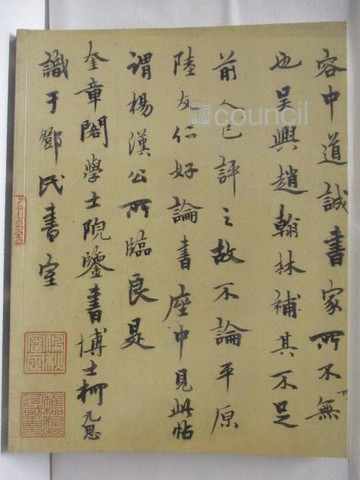 容中道誠書家所不無
也吳興趙翰林補其不足
前人已評之故不論平原
陸友仁好論書座中見此帖
謂楊漢公所臨良是
奎章閣學士院鑒書博士柯九思
識于鄧氏書室
council